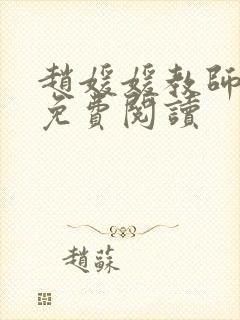 趙媛媛教師
免費閱讀
趙蘇